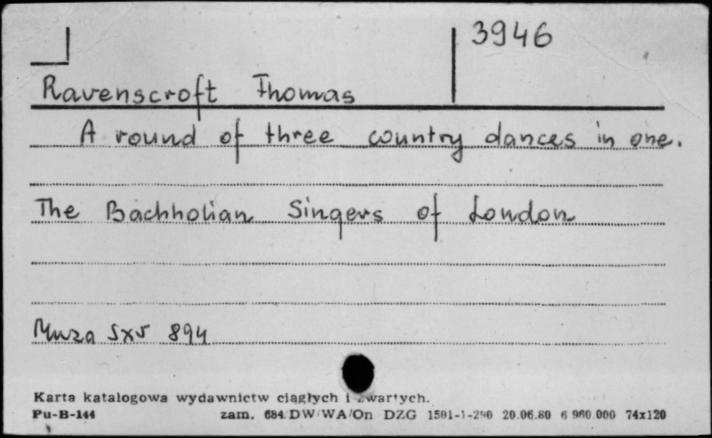 3946
Ravenscroft Thomas
A round of three country dances in one.
The Bachholian Singers of London
Muza SXV 894
Karta katalogowa wydawnictw ciągłych i zwartych.
Pu-B-144 zam. 684/DW/WA/On DZG 1501-1-290 20.06.80 6 960 000 74x120